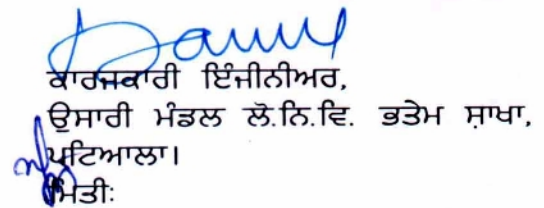 ਕਾਰਜਕਾਰੀ ਇੰਜੀਨੀਅਰ,
ਉਸਾਰੀ ਮੰਡਲ ਲੋ.ਨਿ.ਵਿ. ਭਤੇਮ ਸ਼ਾਖਾ,
ਪਟਿਆਲਾ।
ਮਿਤੀਃ